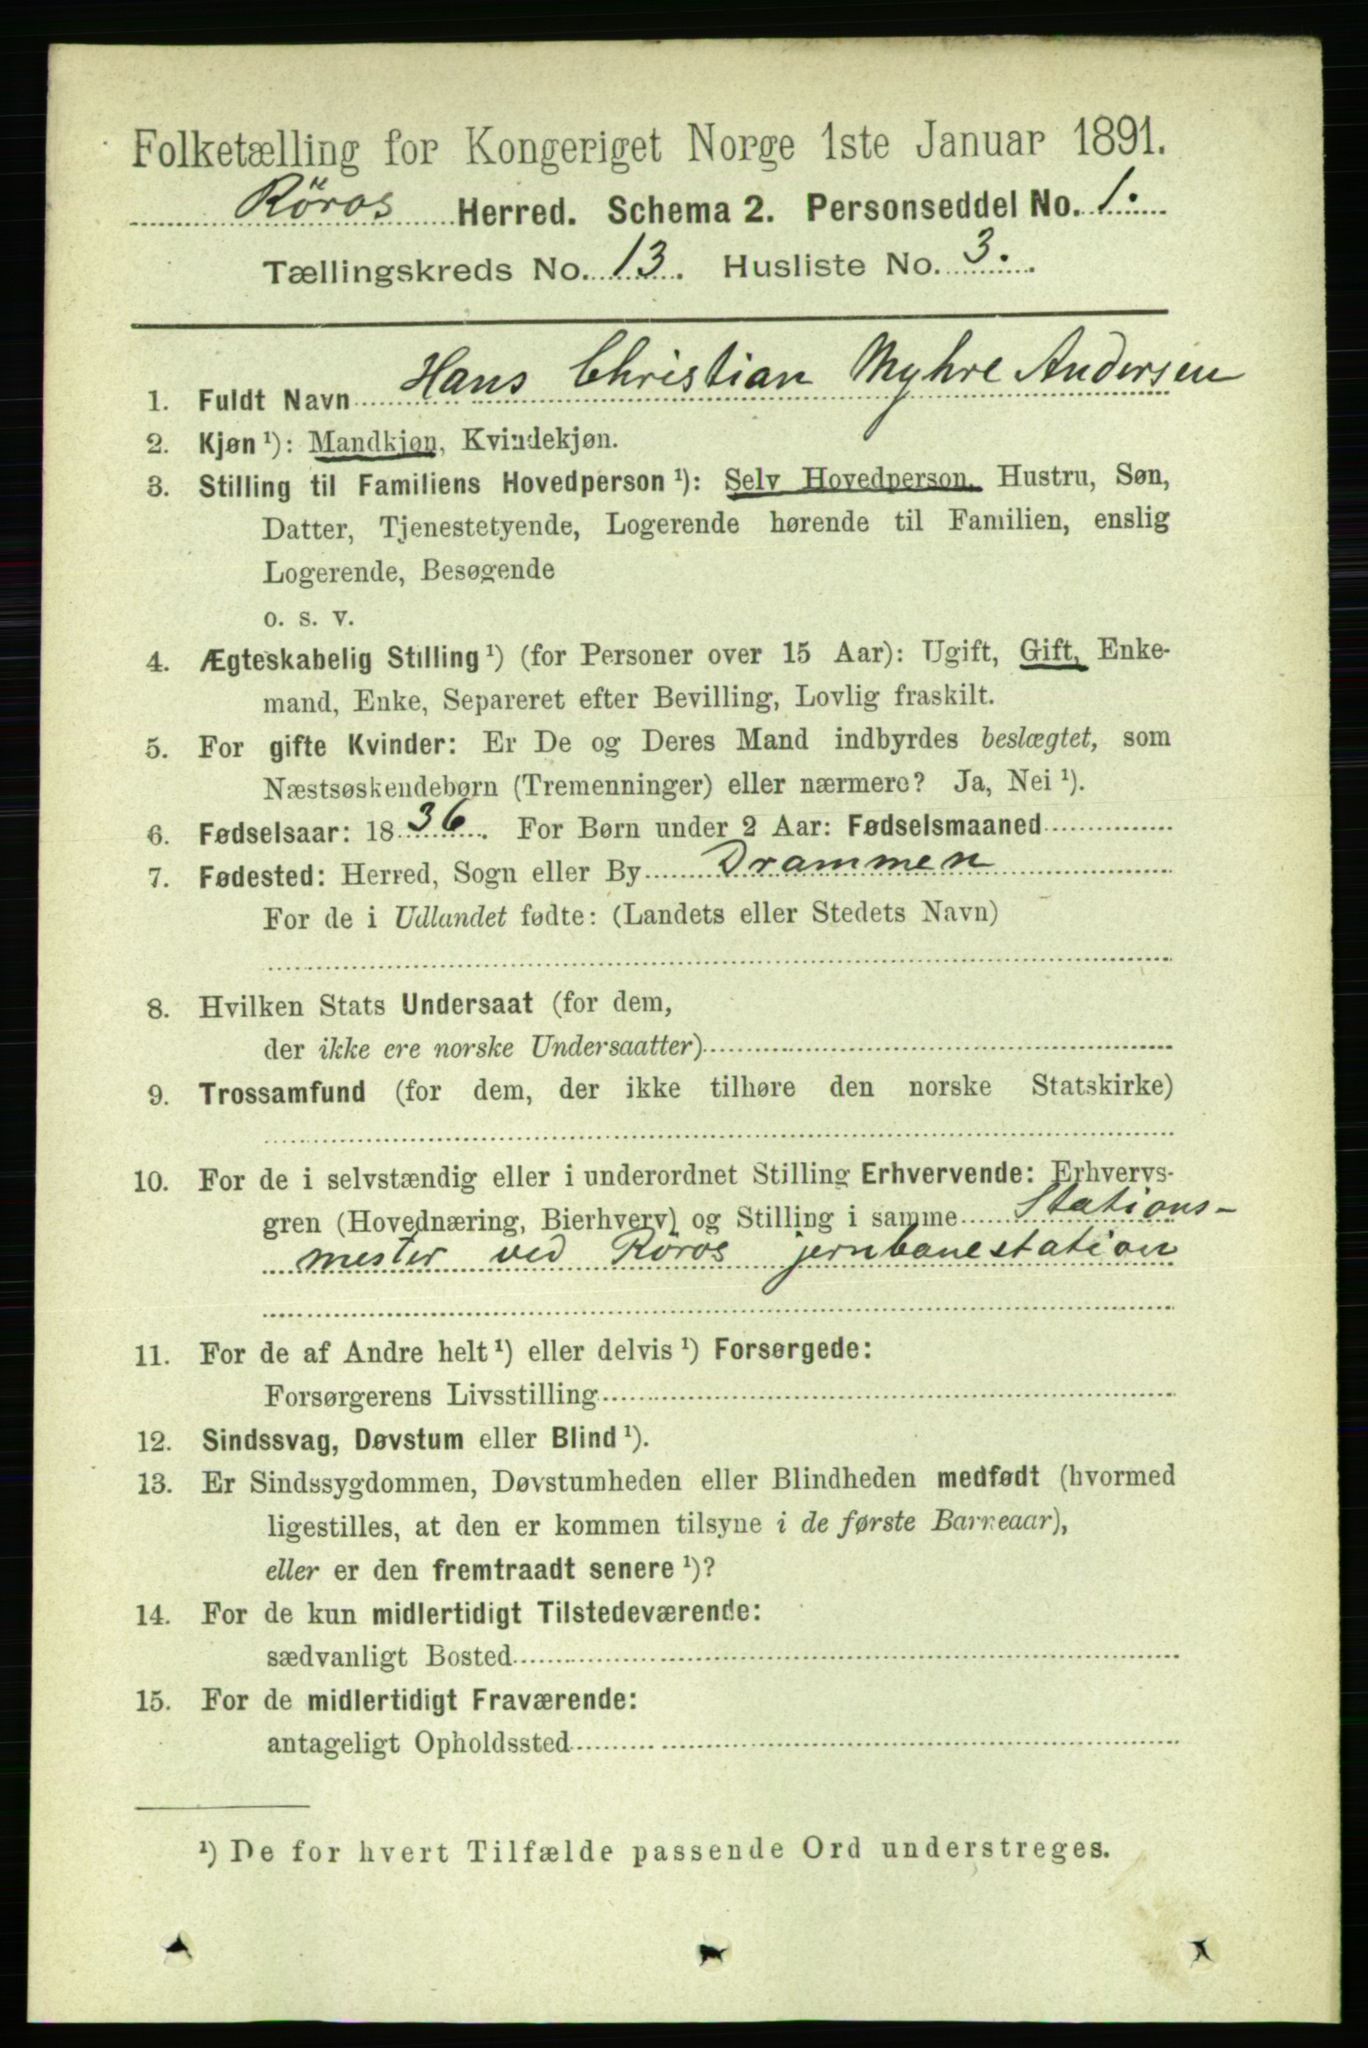 Folketælling for Kongeriget Norge 1ste Januar 1891.
Röros Herred. Schema 2. Personseddel No. 1.
Tællingskreds No. 13. Husliste No. 3.
1. Fuldt Navn Hans Christian Myhre Andersen
2. Kjøn ¹): Mandkjøn, Kvindekjøn.
3. Stilling til Familiens Hovedperson ¹): Selv Hovedperson, Hustru, Søn,
Datter, Tjenestetyende, Logerende hørende til Familien, enslig
Logerende, Besøgende
o. s. v.
4. Ægteskabelig Stilling ¹) (for Personer over 15 Aar): Ugift, Gift, Enke-
mand, Enke, Separeret efter Bevilling, Lovlig fraskilt.
5. For gifte Kvinder: Er De og Deres Mand indbyrdes beslægtet, som
Næstsøskendebørn (Tremenninger) eller nærmere? Ja, Nei ¹).
6. Fødselsaar: 1836. For Børn under 2 Aar: Fødselsmaaned
7. Fødested: Herred, Sogn eller By Drammen
For de i Udlandet fødte: (Landets eller Stedets Navn)
8. Hvilken Stats Undersaat (for dem,
der ikke ere norske Undersaatter)
9. Trossamfund (for dem, der ikke tilhøre den norske Statskirke)
10. For de i selvstændig eller i underordnet Stilling Erhvervende: Erhvervs-
gren (Hovednæring, Bierhverv) og Stilling i samme Stations-
mester ved Röros jernbanestation
11. For de af Andre helt ¹) eller delvis ¹) Forsørgede:
Forsørgerens Livsstilling
12. Sindssvag, Døvstum eller Blind ¹).
13. Er Sindssygdommen, Døvstumheden eller Blindheden medfødt (hvormed
ligestilles, at den er kommen tilsyne i de første Barneaar),
eller er den fremtraadt senere ¹)?
14. For de kun midlertidigt Tilstedeværende:
sædvanligt Bosted
15. For de midlertidigt Fraværende:
antageligt Opholdssted
¹) De for hvert Tilfælde passende Ord understreges.